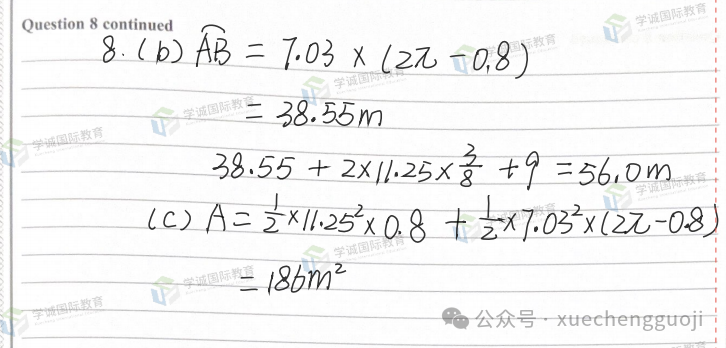 Question 8 continued
8. (b) A͡B = 7.03 × (2π − 0.8)
= 38.55m
38.55 + 2×11.25×3/8 + 9 = 56.0m
(c) A = 1/2 ×11.25²×0.8 + 1/2 ×7.03²×(2π−0.8)
= 186m²
学诚国际教育
公众号 · xuechengguoji